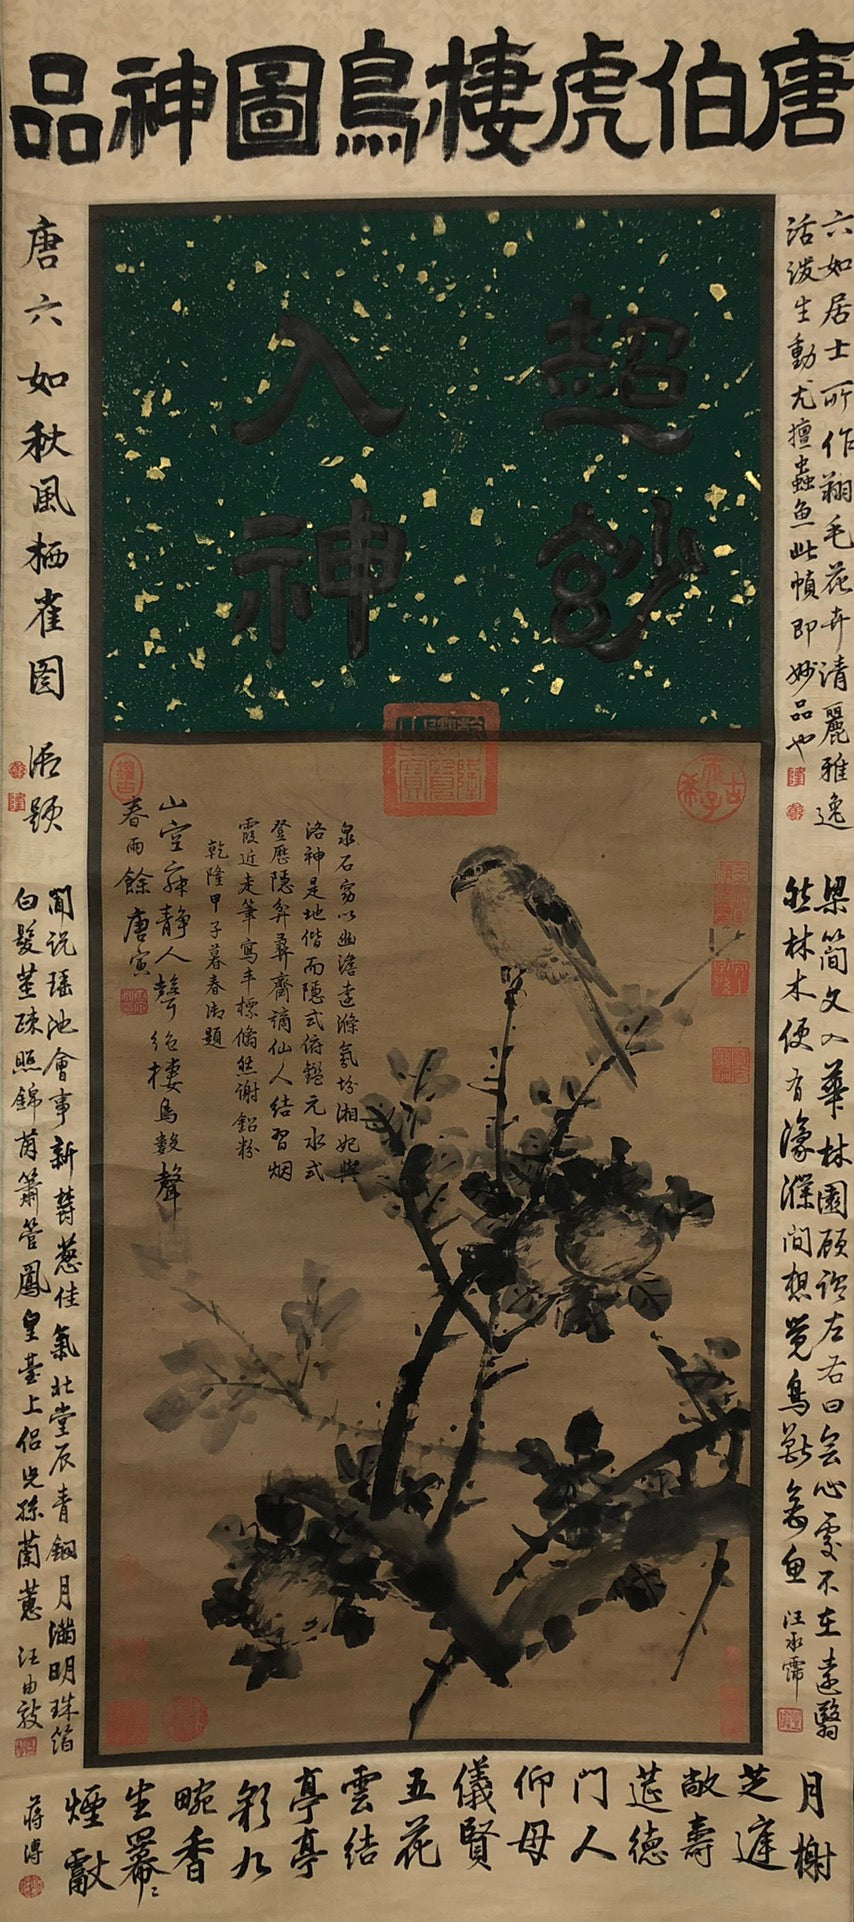 唐伯虎棲鳥圖神品
超妙
入神
六如居士所作翔毛花卉清麗雅逸
活潑生動尤擅蟲魚此幀即妙品也
唐六如秋風栖雀图 御题
泉石窈以幽澹遠滌氛坋湘妃與
洛神是地偕而隱式俯鑑元水式
登歷隱弅彞齋謫仙人結習烟
霞近走筆寫丰標翛然謝鉛粉
乾隆甲子暮春御題
山空寂静人聲絕棲鳥數聲
春雨餘 唐寅
梁簡文入華林園顧謂左右曰會心處不在遠翳
然林木便有濠濮間想覺鳥獸禽魚 汪承霈
聞説瑶池會事新葱佳氣北堂辰青銅月滿明珠箔
白髮茎疎照錦茵簫管鳳皇臺上侣兒孫蘭蕙 汪由敦
月榭
芝遶
敞壽
莚德
門人
仰母
儀賢
五花
雲结
亭亭
彩九
畹香
生冪冪
煙獻
蒋溥